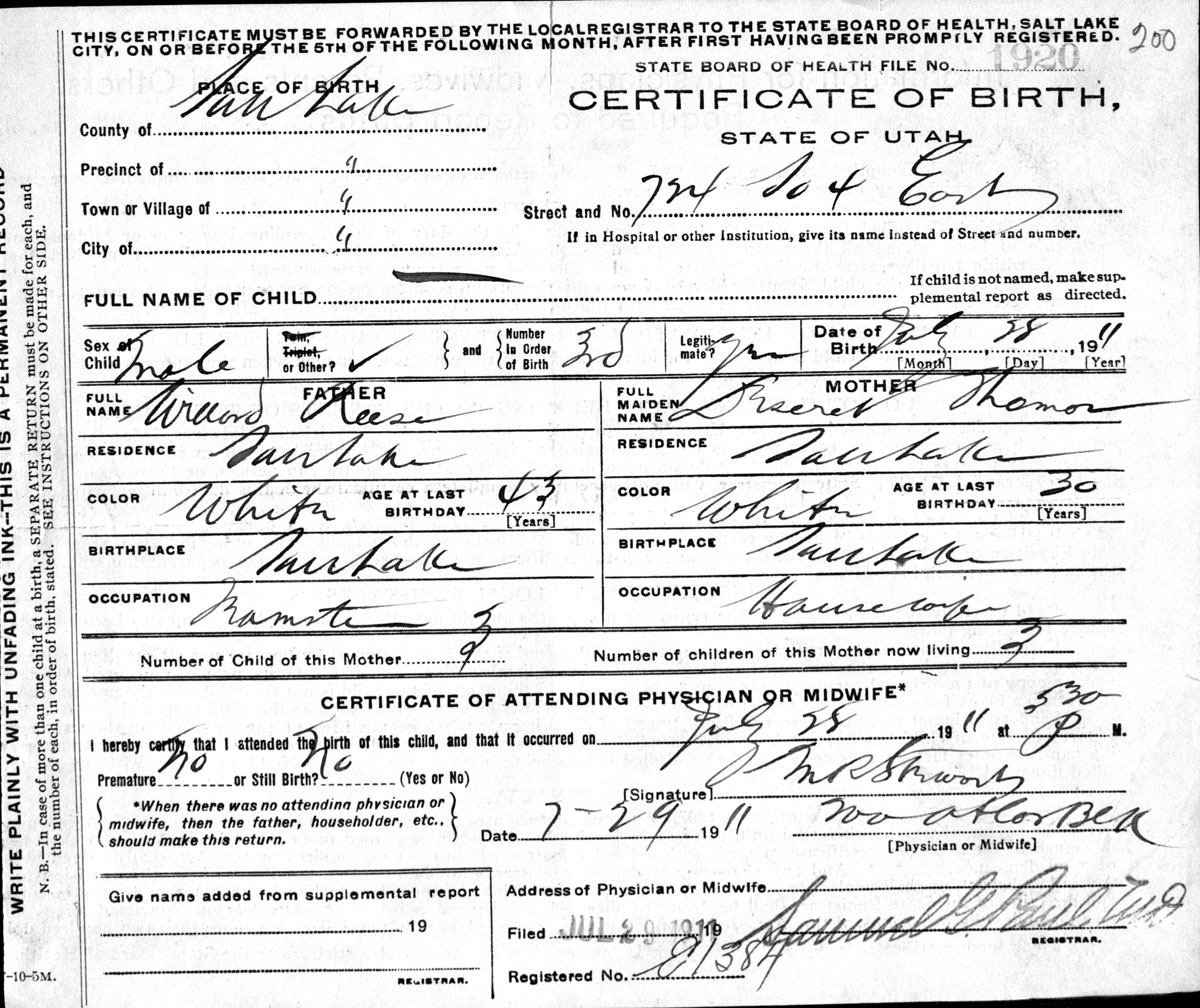 THIS CERTIFICATE MUST BE FORWARDED BY THE LOCALREGISTRAR TO THE STATE BOARD OF HEALTH, SALT LAKE
CITY, ON OR BEFORE THE 5TH OF THE FOLLOWING MONTH, AFTER FIRST HAVING BEEN PROMPTLY REGISTERED.
200
STATE BOARD OF HEALTH FILE No. 1920
PLACE OF BIRTH
CERTIFICATE OF BIRTH,
STATE OF UTAH
County of Salt Lake
Precinct of "
Town or Village of "
Street and No. East
City of "
If in Hospital or other Institution, give its name instead of Street and number.
FULL NAME OF CHILD
If child is not named, make sup-
plemental report as directed.
Sex of Child Male
Twin, Triplet, or Other? ✓ and Number in Order of Birth 3rd
Legiti-mate? yes
Date of Birth July 28, 1911
[Month] [Day] [Year]
FATHER
FULL NAME Willard Reese
MOTHER
FULL MAIDEN NAME Deseret Thomas
RESIDENCE Salt Lake
RESIDENCE Salt Lake
COLOR White AGE AT LAST BIRTHDAY 43 [Years]
COLOR White AGE AT LAST BIRTHDAY 30 [Years]
BIRTHPLACE Salt Lake
BIRTHPLACE Salt Lake
OCCUPATION
OCCUPATION Housewife
Number of Child of this Mother 3
Number of children of this Mother now living 3
CERTIFICATE OF ATTENDING PHYSICIAN OR MIDWIFE*
I hereby certify that I attended the birth of this child, and that it occurred on July 28 1911 at 530 P M.
Premature No or Still Birth? No (Yes or No)
[Signature]
*When there was no attending physician or
midwife, then the father, householder, etc.,
should make this return.
Date 7-29 1911
[Physician or Midwife]
Give name added from supplemental report
19
REGISTRAR.
Address of Physician or Midwife
Filed JUL 29 1911 19 Samuel G Paul
REGISTRAR.
Registered No. E1384
-10-5M.
WRITE PLAINLY WITH UNFADING INK—THIS IS A PERMANENT RECORD
N. B.—In case of more than one child at a birth, a SEPARATE RETURN must be made for each, and
the number of each, in order of birth, stated. SEE INSTRUCTIONS ON OTHER SIDE.